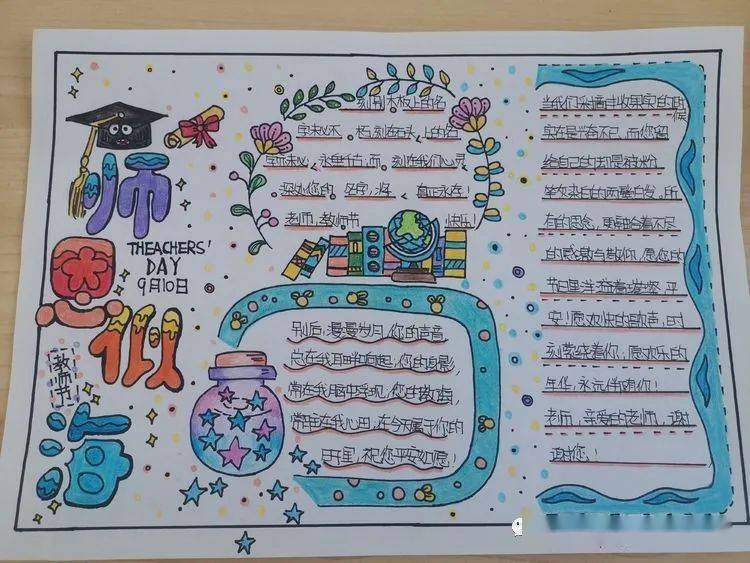 师
恩
似
海
THEACHERS'
DAY
9月10日
教师节
刻在木板上的名
字未必不朽,刻在石头上的名
字亦未必永垂千古,而刻在我们心灵
深处您的名字,将真正永在!
老师,教师节快乐!
别后,漫漫岁月,您的声音,
总在我耳畔响起,您的身影,
常在我脑中浮现,您的教诲,
常驻在我心田,在今天属于您的
日子里,祝您平安如愿!
当我们采摘丰收果实的时候
实在是兴奋不已,而您留
给自己的却是被粉
笔灰染白的两鬓白发,所
有的思念,更融合着不尽
的感激与敬仰,愿您的
节日里洋溢着-平
安!愿欢快的歌声,时
刻萦绕着你,愿欢乐的
年华,永远伴随你!
老师,亲爱的老师,谢
谢您!